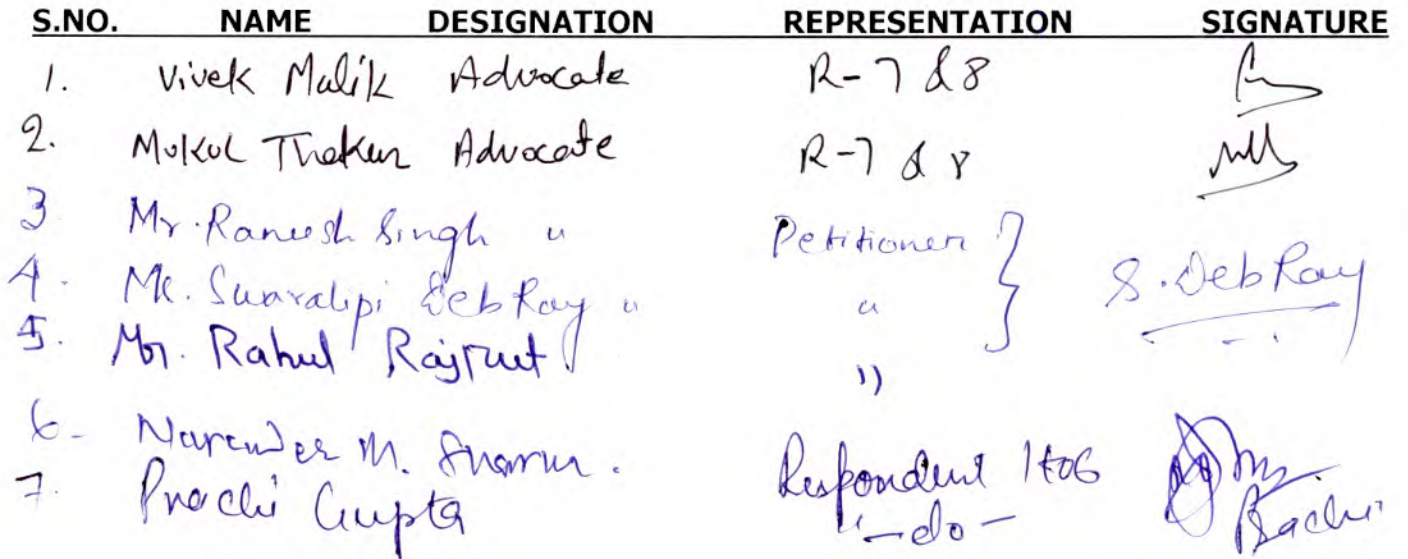 S.NO. NAME DESIGNATION REPRESENTATION SIGNATURE
1. Vivek Malik Advocate R-7 & 8
2. Mukul Thakur Advocate R-7 & 8
3 Mr. Ranjesh Singh " Petitioner
4. Ms. Swaralipi DebRay " " S. DebRay
5. Mr. Rahul Rajput "
6- Narender M. Sharma. Respondent 1to6
7. Prachi Gupta "-do- Prachi